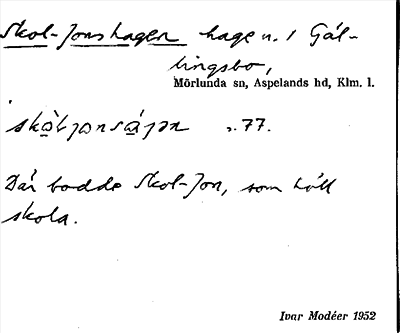 Skol-Jonshagen hage n. / Gål-
lingsbo,
Mörlunda sn, Aspelands hd, Klm. l.
77.
Där bodde Skol-Jon, som höll
skola.
Ivar Modéer 1952